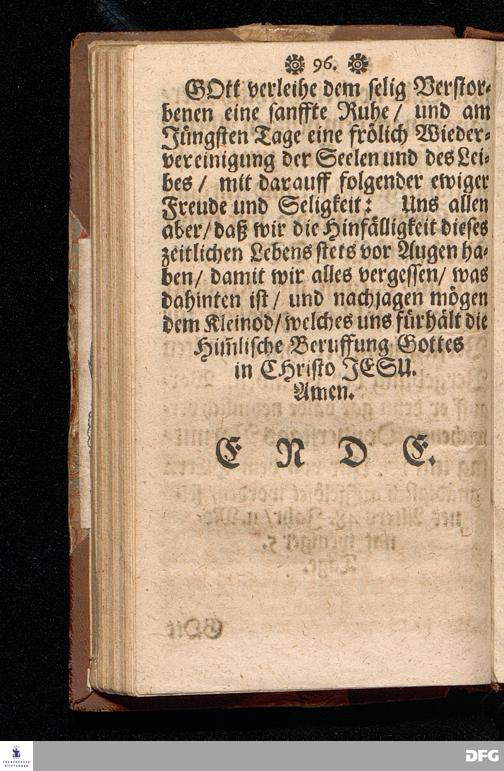 96.
GOtt verleihe dem selig Verstor-
benen eine sanffte Ruhe / und am
Jüngsten Tage eine frölich Wieder-
vereinigung der Seelen und des Lei-
bes / mit darauff folgender ewiger
Freude und Seligkeit: Uns allen
aber / daß wir die Hinfälligkeit dieses
zeitlichen Lebens stets vor Augen ha-
ben / damit wir alles vergessen / was
dahinten ist / und nachjagen mögen
dem Kleinod / welches uns fürhält die
Him̃lische Beruffung Gottes
in CHristo JESU.
Amen.
E N D E.
FRANCKESCHE
STIFTUNGEN
DFG